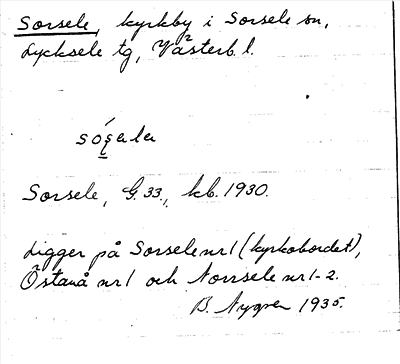 Sorsele, kyrkby i Sorsele sn,
Lycksele tg, Västerb. l.
Sorsele, G. 33., kb. 1930.
Ligger på Sorsele nr 1 (kyrkobordet),
Östanå nr 1 och Norrsele nr 1-2.
B. Nygren 1935.